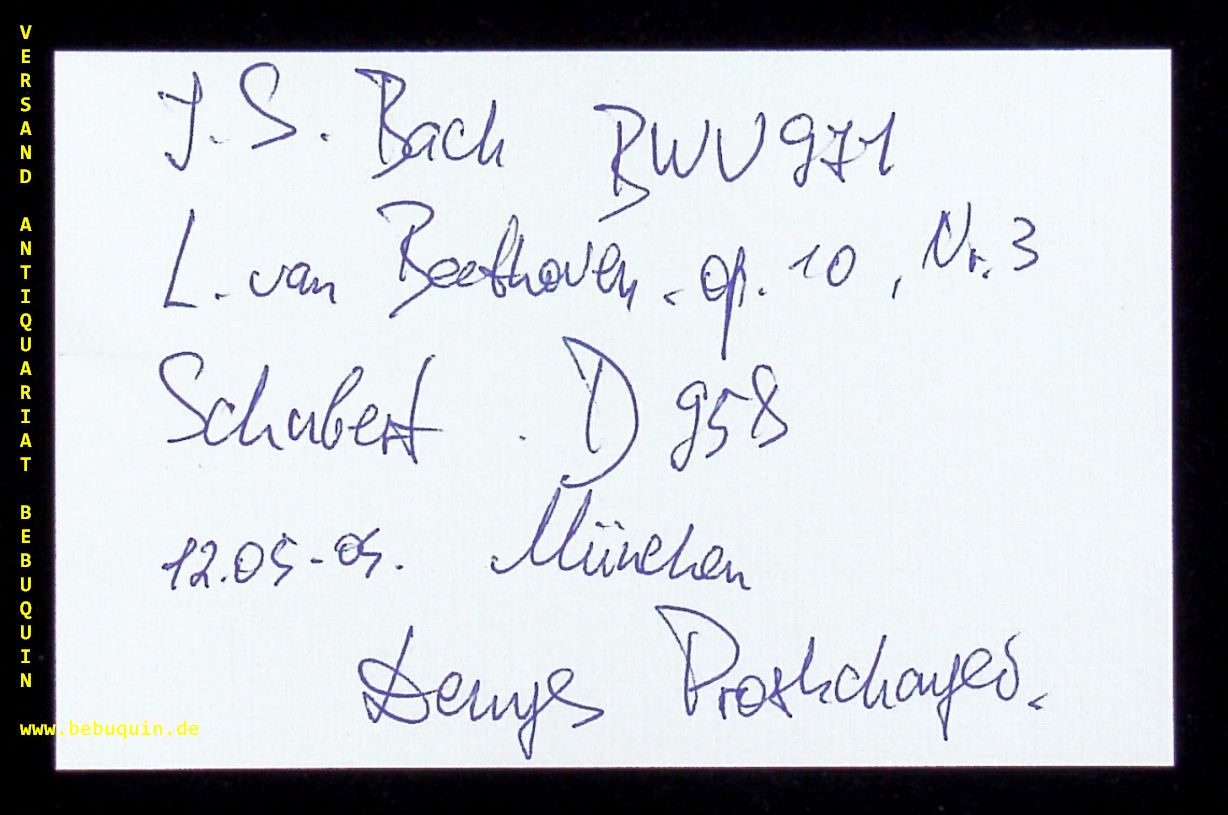 VERSAND ANTIQUARIAT BEBUQUIN
www.bebuquin.de
J. S. Bach BWV 971
L. van Beethoven. op. 10, Nr. 3
Schubert . D 958
12.05-05. München
Denys Proshchayev.